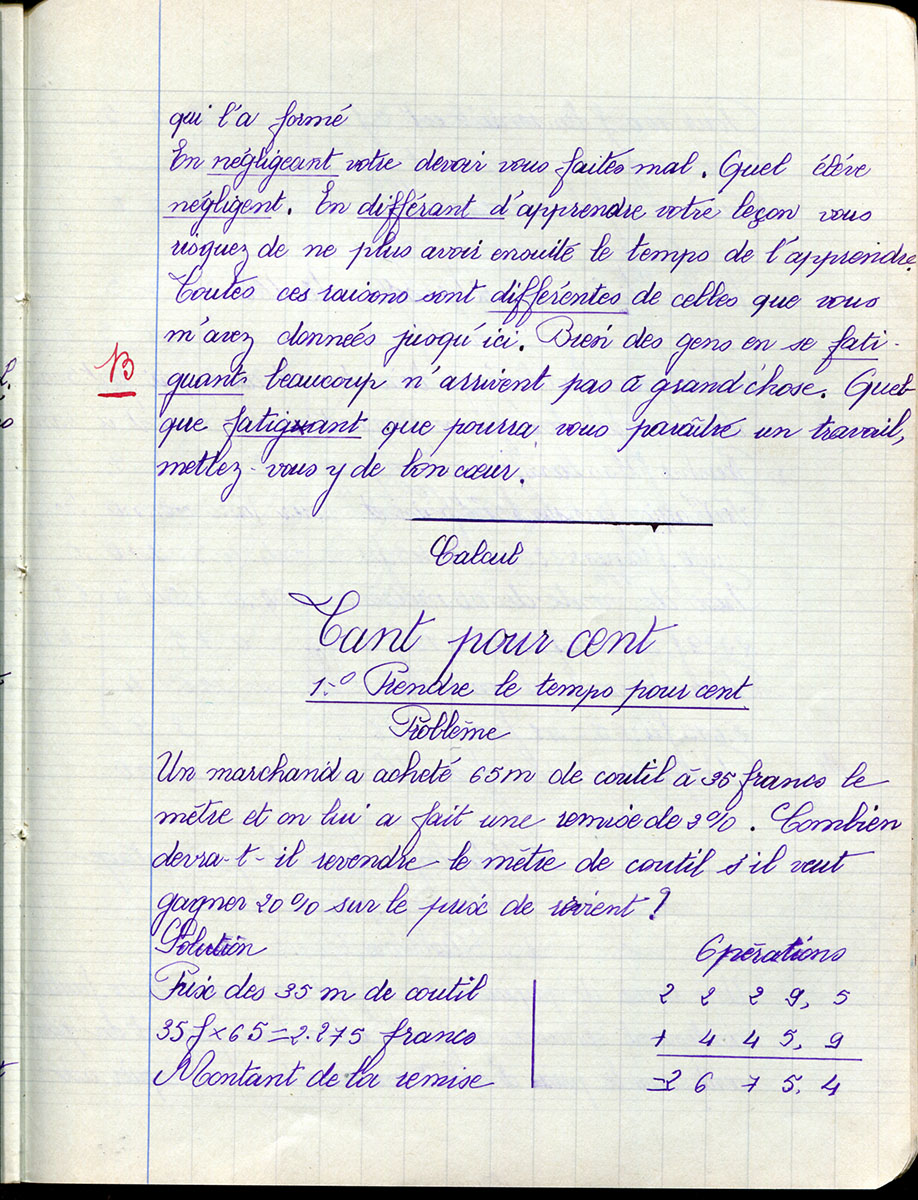 qui l'a formé
En négligeant votre devoir vous faites mal. Quel élève
négligent. En différant d'apprendre votre leçon vous
risquez de ne plus avoir ensuite le temps de l'apprendre.
Toutes ces raisons sont différentes de celles que vous
m'avez données jusqu'ici. Bien des gens en se fati-
B
guant beaucoup n'arrivent pas à grand'chose. Quel-
que fatiguant que pourra vous paraître un travail,
mettez-vous y de bon cœur.
Calcul
Tant pour cent
1:º Prendre le temps pour cent
Problème
Un marchand a acheté 65m de coutil à 35 francs le
mètre et on lui a fait une remise de 2%. Combien
devra-t-il revendre le mètre de coutil s'il veut
gagner 20% sur le prix de revient?
Solution
Opérations
Prix des 35 m de coutil
2 2 2 9, 5
35f × 65 = 2.275 francs
+ 4 4 5, 9
Montant de la remise
2 6 7 5, 4